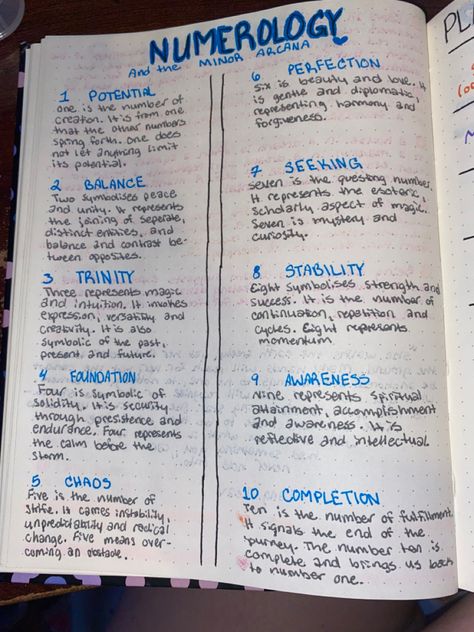 NUMEROLOGY
And the MINOR ARCANA
1 POTENTIAL
One is the number of
creation. It is from one
that the other numbers
spring forth. One does
not let anything limit
its potential.
2 BALANCE
Two symbolises peace
and unity. It represents
the joining of seperate,
distinct entities, and
balance and contrast be-
tween opposites.
3 TRINITY
Three represents magic
and intuition. It involves
expression, versatility and
creativity. It is also
symbolic of the past,
present and future.
4 FOUNDATION
Four is symbolic of
solidity. It is security
through presistence and
endurance. Four represents
the calm before the
storm.
5 CHAOS
Five is the number of
strife. It carries instability,
unpredictability and radical
change. Five means over-
coming an obstacle.
6 PERFECTION
Six is beauty and love. It
is gentle and diplomatic,
representing harmony and
forgiveness.
7 SEEKING
Seven is the questing number.
It represents the esoteric,
scholarly aspect of magic.
Seven is mystery and
curiosity.
8 STABILITY
Eight symbolises strength and
success. It is the number of
continuation, repatition and
cycles. Eight represents
momentum.
9 AWARENESS
Nine represents spiritual
attainment, accomplishment
and awareness. It is
reflective and intellectual
10 COMPLETION
Ten is the number of fulfillment.
It signals the end of the
journey. The number ten is
complete and brings us back
to number one.
PL